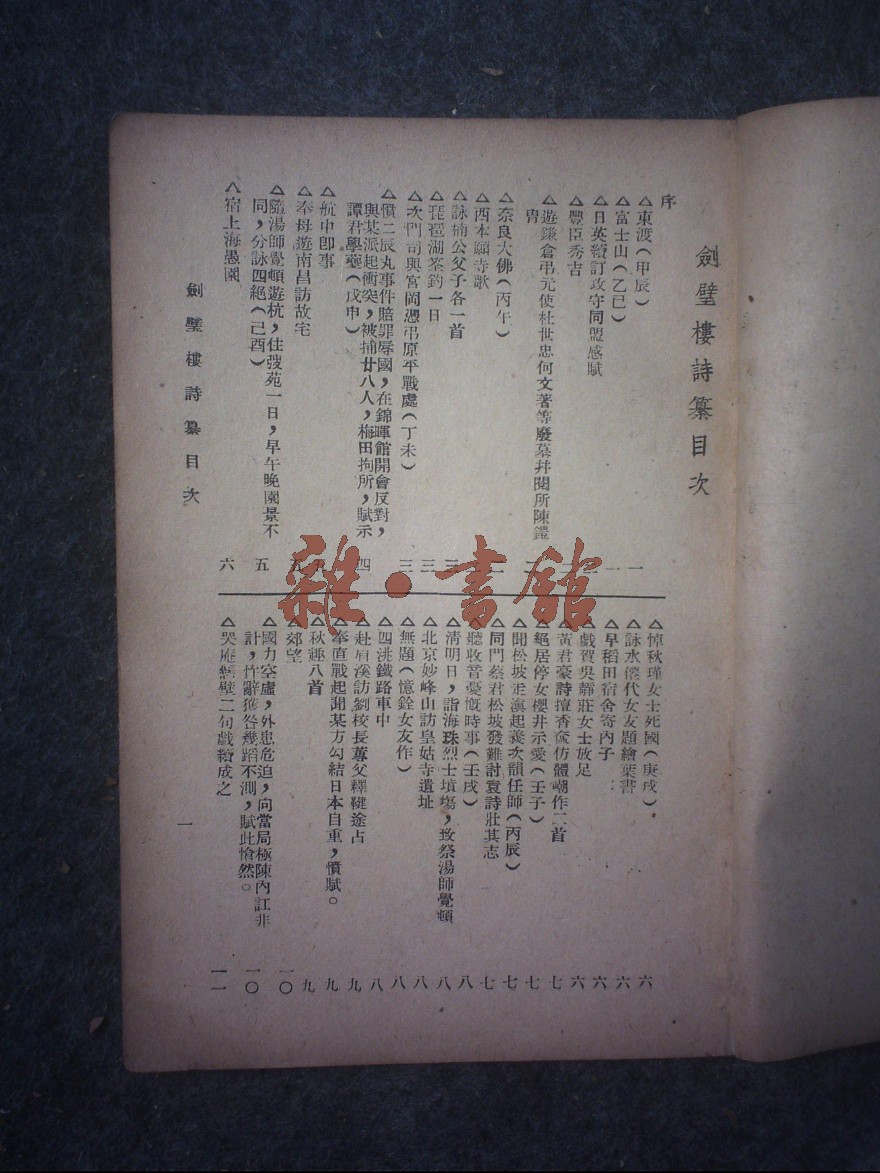 劍璧樓詩纂目次
序
△東渡(甲辰) 一
△富士山(乙巳) 一
△日英續訂攻守同盟感賦
△豐臣秀吉
△遊鎌倉弔元使杜世忠何文著等廢墓幷閱所陳鎧
冑 二
△奈良大佛(丙午)
△西本願寺歌
△詠楠公父子各一首 三
△琵琶湖垂釣一日 三
△次門司與宮岡憑弔原平戰處(丁未) 三
△憤二辰丸事件賠罪辱國,在錦暉館開會反對,
與某派起衝突,被捕廿八人,梅田拘所,賦示
譚君學夔(戊申) 四
△航中卽事
△奉母遊南昌訪故宅 五
△隨湯師覺頓遊杭,住弢苑一日,早午晚園景不
同,分詠四絕(己酉) 五
△宿上海愚園 六
△悼秋瑾女士死國(庚戌) 六
△詠水僊代女友題繪葉書 六
△早稻田宿舍寄內子 六
△戲賀吳靜莊女士放足 六
△黃君豪詩擅香奩仿體嘲作二首 七
△絕居停女櫻井示愛(壬子) 七
△聞松坡走滇起義次韻任師(丙辰) 七
△同門蔡君松坡發難討袁詩壯其志 七
△聽收音憂慨時事(壬戌) 八
△清明日,詣海珠烈士墳塲,致祭湯師覺頓 八
△北京妙峰山訪皇姑寺遺址 八
△無題(憶銓女友作) 八
△四洮鐵路車中 八
△赴眉溪訪劉校長蓴父釋鞬途占 九
△奉直戰起聞某方勾結日本自重,憤賦。 九
△秋趣八首 九
△郊望 一〇
△國力空虛,外患危迫,向當局極陳內訌非
計,忤辭獲咎幾蹈不測,賦此愴然。 一〇
△哭庵經壁二句戲續成之 一一
劍璧樓詩纂目次
一
雜·書館